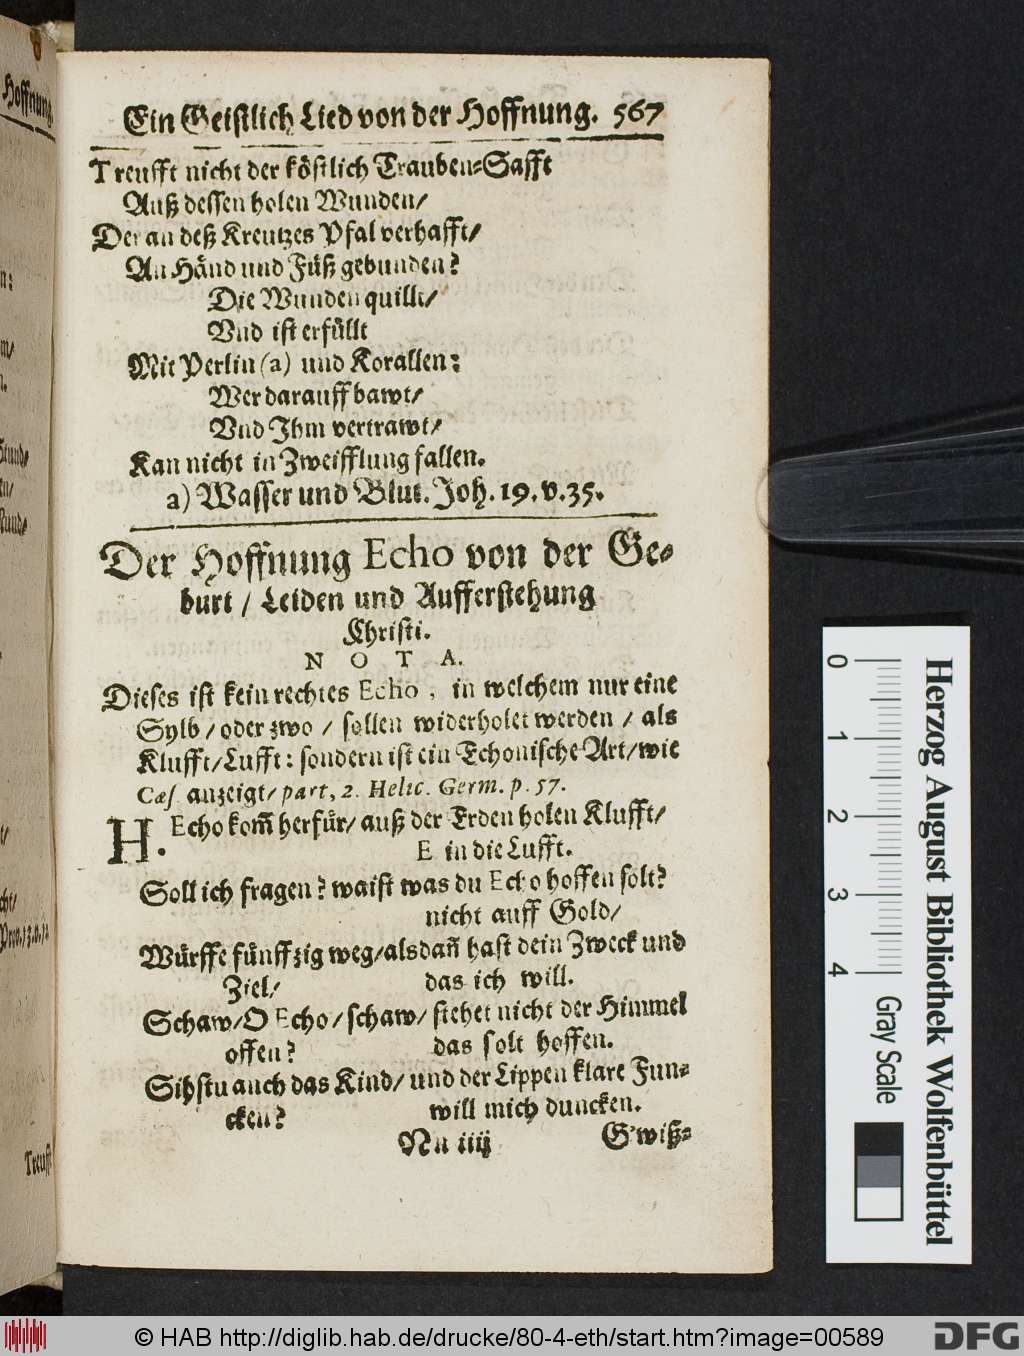 Ein Geistlich Lied von der Hoffnung. 567
Treufft nicht der köstlich Trauben-Safft
Auß dessen holen Wunden/
Der an deß Kreutzes Pfal verhafft/
An Händ und Füß gebunden?
Die Wunden quillt/
Vnd ist erfüllt
Mit Perlin (a) und Korallen:
Wer darauff bawt/
Vnd Ihm vertrawt/
Kan nicht in Zweifflung fallen.
a) Wasser und Blut. Joh. 19. v. 35.
Der Hoffnung Echo von der Ge-
burt / Leiden und Aufferstehung
Christi.
NOTA.
Dieses ist kein rechtes Echo, in welchem nur eine
Sylb / oder zwo / sollen widerholet werden / als
Klufft/Lufft: sondern ist ein Echonische Art/ wie
Cæs. anzeigt/ part, 2. Helic. Germ. p. 57.
H. Echo kom̃ herfür/ auß der Erden holen Klufft/
E in die Lufft.
Soll ich fragen? waist was du Echo hoffen solt?
nicht auff Gold/
Würffe fünffzig weg/ alsdañ hast dein Zweck und
Ziel/ das ich will.
Schaw/ O Echo/ schaw/ stehet nicht der Himmel
offen? das solt hoffen.
Sihstu auch das Kind/ und der Lippen klare Fun-
cken? will mich duncken.
Nn iiij G'wiß-
Hoffnung.
Treufft
0 1 2 3 4
Gray Scale
Herzog August Bibliothek Wolfenbüttel
© HAB http://diglib.hab.de/drucke/80-4-eth/start.htm?image=00589
DFG